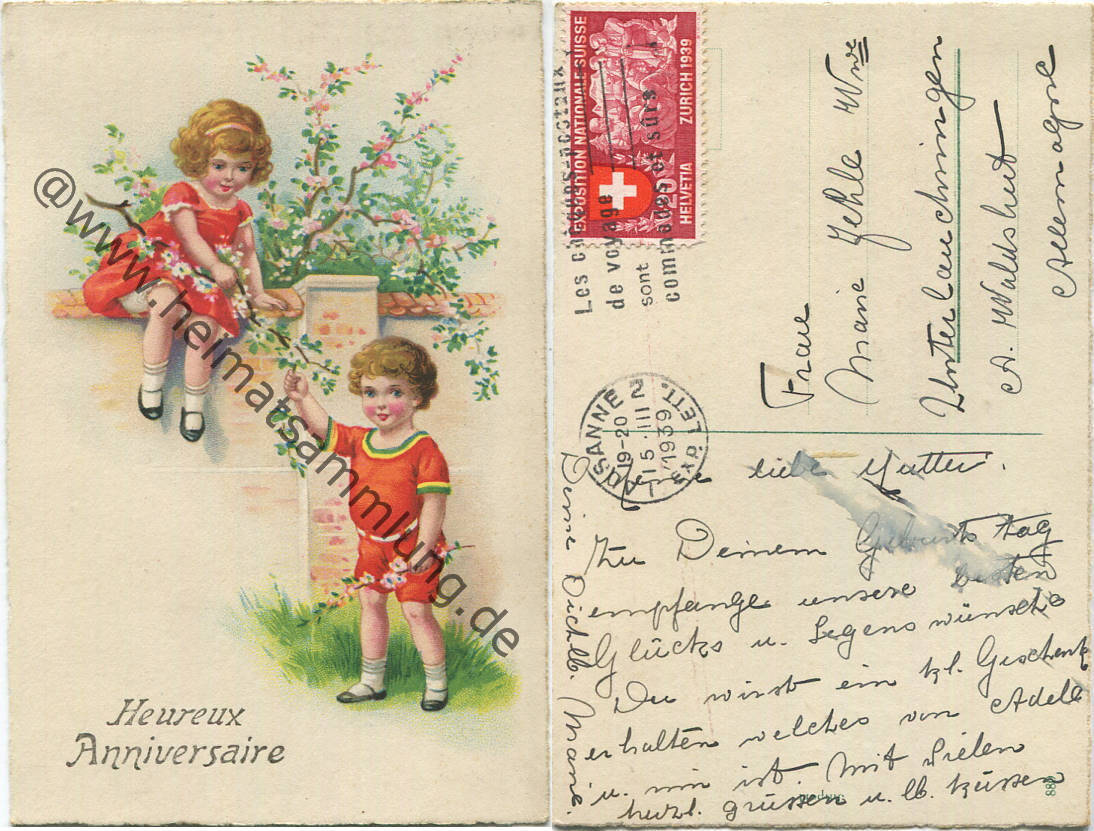 Heureux
Anniversaire
@www.heimatsammlung.de
EXPOSITION NATIONALE SUISSE
ZURICH 1939
20
HELVETIA
Les chèques postaux
de voyage
sont
commodes et sûrs
LAUSANNE 2
19-20
15.III
1939
EXP. LETT.
Frau
Marie Jehle Wwe
Unterlauchringen
A. Waldshut
Allemagne
liebe Mutter.
Zu Deinem Geburtstag
empfange unsere besten
Glücks u. Segenswünsche
Du wirst ein kl. Geschenk
erhalten welches von Adele
u. mir ist. Mit vielen
herzl. grüssen u. lb. küssen
Deine Dichlb. Marie.